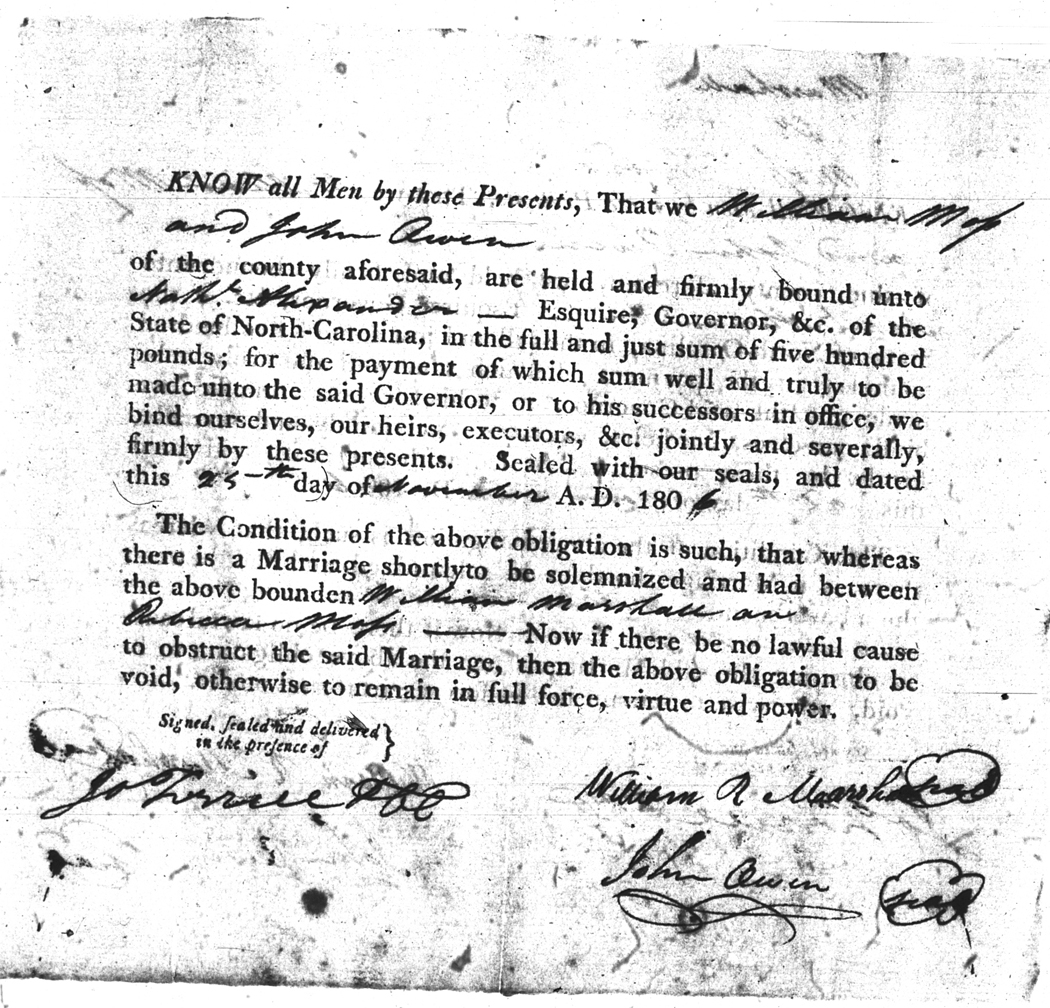 KNOW all Men by these Presents, That we William Moss
and John Owen
of the county aforesaid, are held and firmly bound unto
Nathl. Alexander — Esquire, Governor, &c. of the
State of North-Carolina, in the full and just sum of five hundred
pounds; for the payment of which sum well and truly to be
made unto the said Governor, or to his successors in office, we
bind ourselves, our heirs, executors, &c. jointly and severally,
firmly by these presents. Sealed with our seals, and dated
this 25th day of November A. D. 1806
The Condition of the above obligation is such, that whereas
there is a Marriage shortly to be solemnized and had between
the above bounden William Marshall an
Rebecca Moss — Now if there be no lawful cause
to obstruct the said Marriage, then the above obligation to be
void, otherwise to remain in full force, virtue and power.
Signed, sealed and delivered }
in the presence of
Jo Terrell DCC
William R Marshall seal
John Owen seal